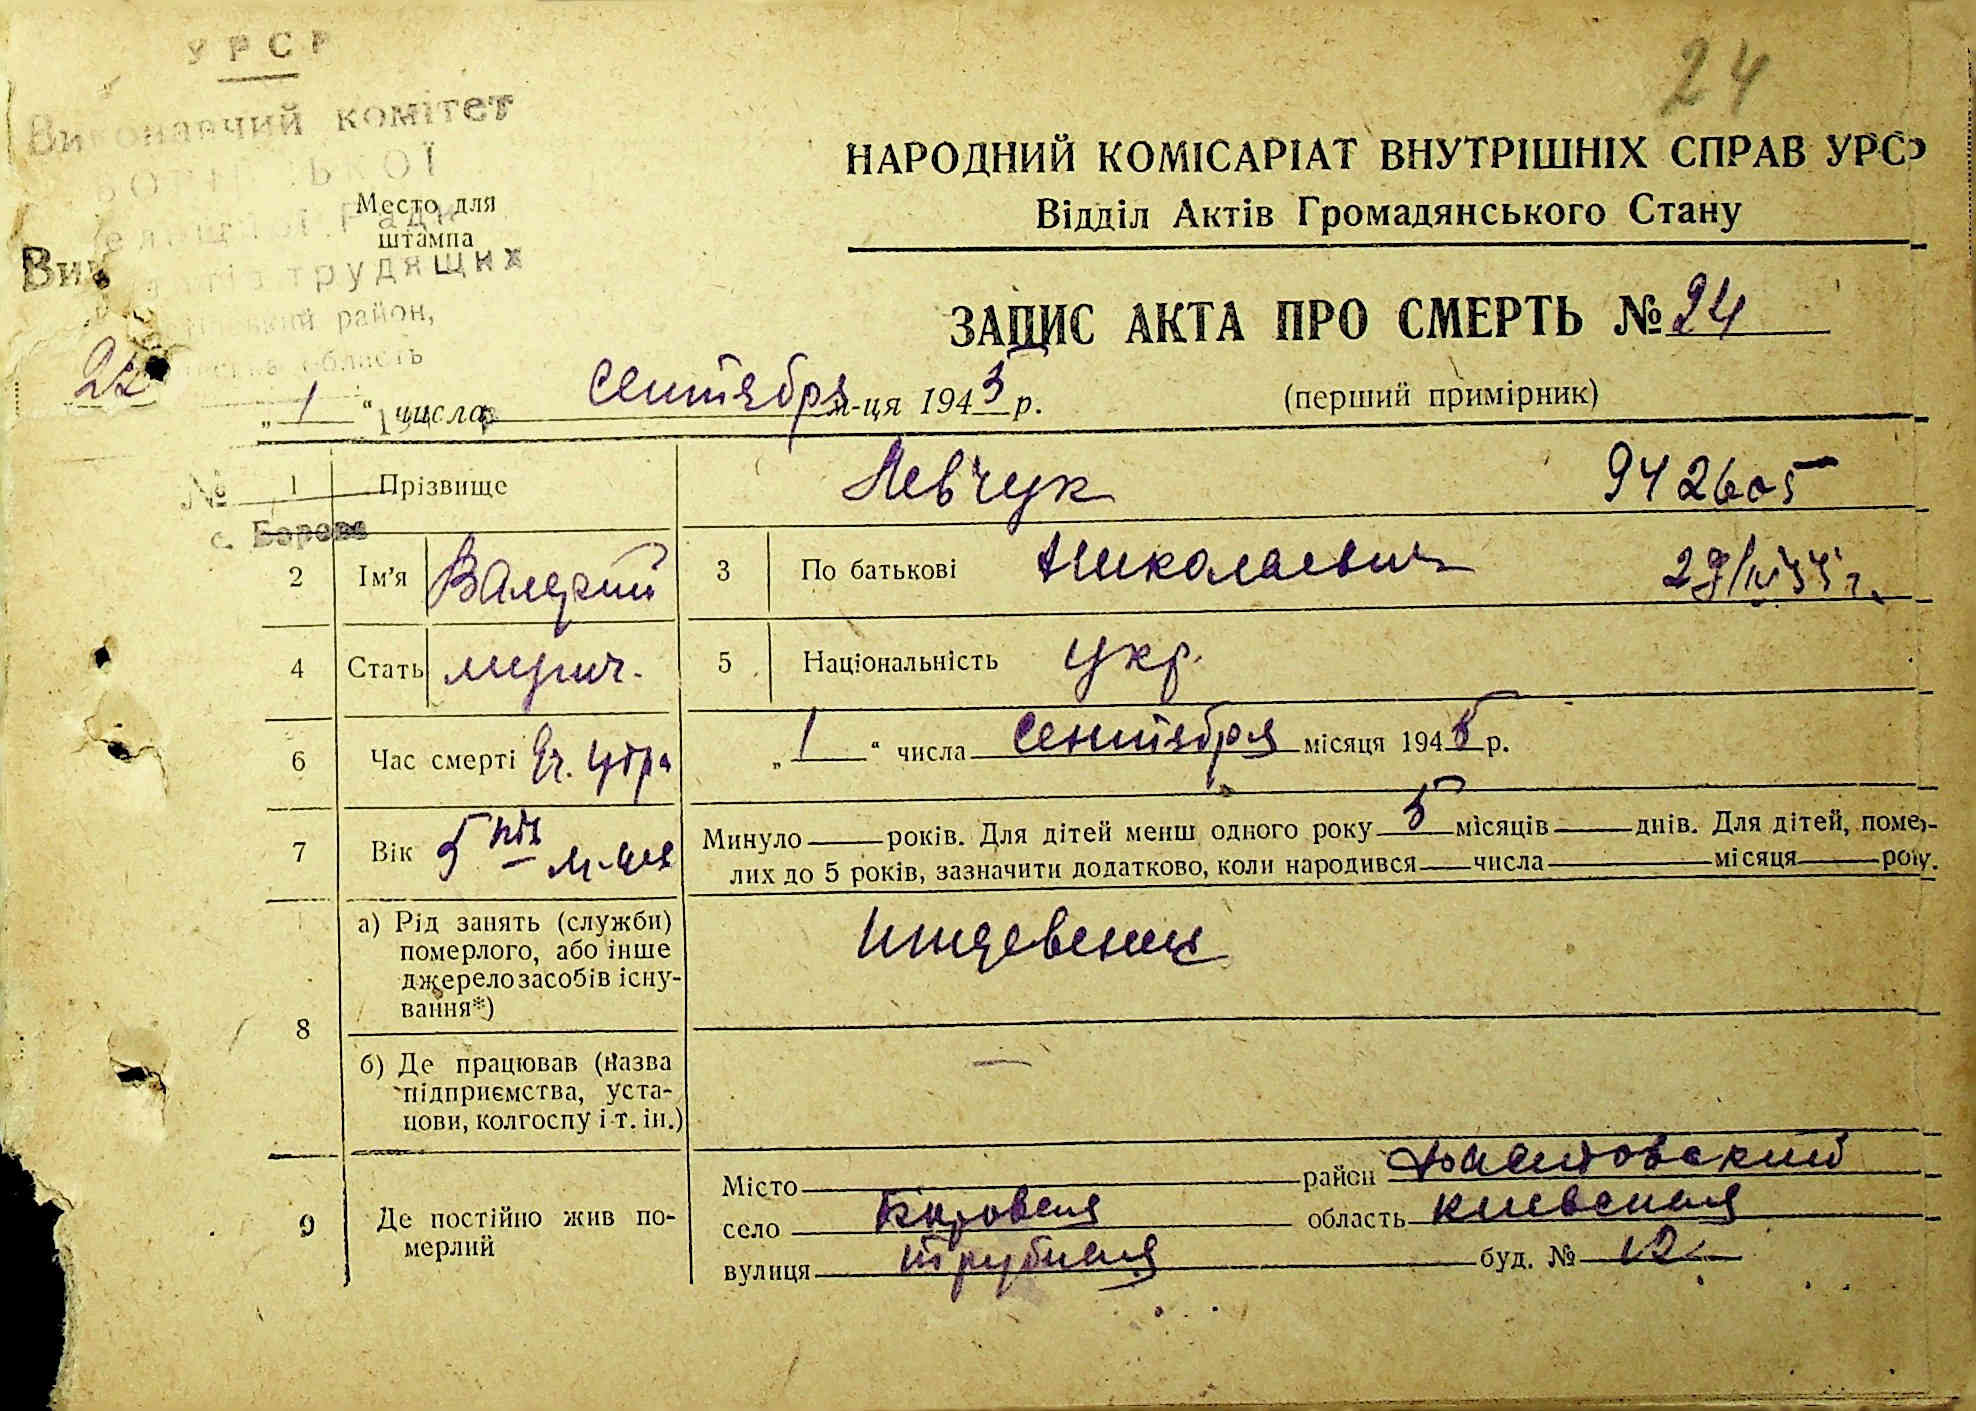 УРСР
24
Виконавчий комітет
НАРОДНИЙ КОМІСАРІАТ ВНУТРІШНІХ СПРАВ УРСР
Відділ Актів Громадянського Стану
Место для
штампа
трудящих
район,
область
ЗАПИС АКТА ПРО СМЕРТЬ № 24
„ 1 “ числа сентября м-ця 1945 р.
(перший примірник)
№
1 Прізвище Левчук 942605
с. Борова
2 Ім’я Валерий 3 По батькові Николаевич
4 Стать мужч. 5 Національність укр.
6 Час смерті утра „ 1 “ числа сентября місяця 1945 р.
7 Вік 5 м-цев Минуло років. Для дітей менш одного року 5 місяців днів. Для дітей, поме-
лих до 5 років, зазначити додатково, коли народився числа місяця року.
8 а) Рід занять (служби)
померлого, або інше
джерело засобів існу-
вання*)
иждевенец
б) Де працював (назва
підприємства, уста-
нови, колгоспу і т. ін.)
—
9 Де постійно жив по-
мерлий
Місто район Фастовский
село область Киевская
вулиця буд. № 12